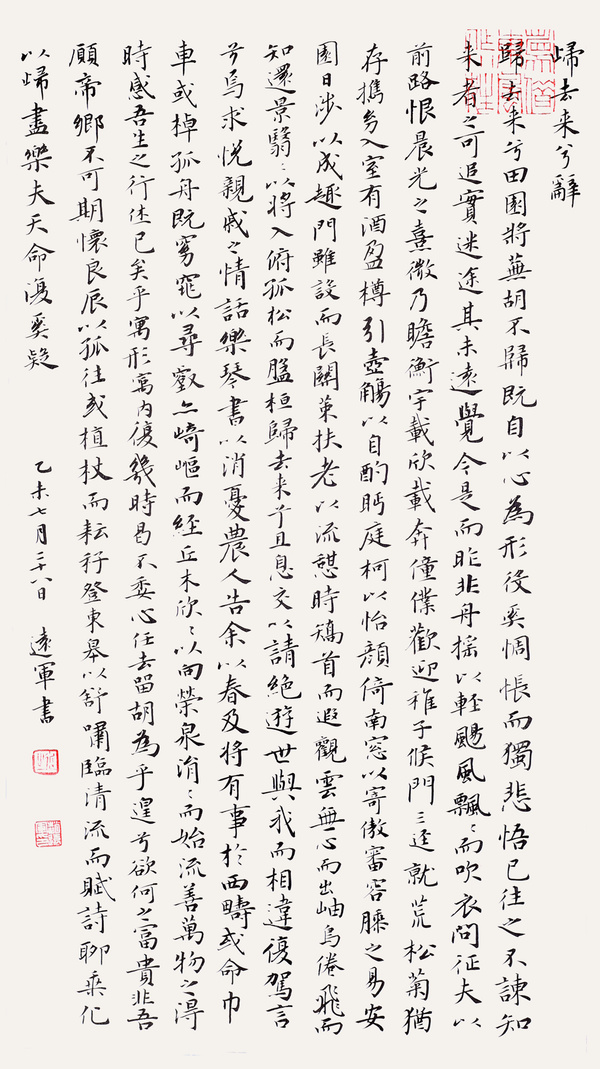 歸去来兮辭
歸去来兮田園將蕪胡不歸既自以心為形役奚惆悵而獨悲悟已往之不諫知
来者之可追實迷途其未遠覺今是而昨非舟搖以輕颺風飄〻而吹衣問征夫以
前路恨晨光之熹微乃瞻衡宇載欣載奔僮僕歡迎稚子候門三逕就荒松菊猶
存攜幼入室有酒盈樽引壺觴以自酌眄庭柯以怡顏倚南窓以寄傲審容膝之易安
園日涉以成趣門雖設而長關策扶老以流憩時矯首而遐觀雲無心而出岫鳥倦飛而
知還景翳〻以將入俯孤松而盤桓歸去来兮且息交以請絶遊世與我而相違復駕言
兮焉求悅親戚之情話樂琴書以消憂農人告余以春及將有事於西疇或命巾
車或棹孤舟既窈窕以尋壑亦崎嶇而經丘木欣〻以向榮泉涓〻而始流善萬物之得
時感吾生之行休已矣乎寓形寓內復幾時曷不委心任去留胡為乎遑兮欲何之富貴非吾
願帝鄉不可期懷良辰以孤往或植杖而耘耔登東皋以舒嘯臨清流而賦詩聊乘化
以歸盡樂夫天命復奚疑
乙未七月二十八日 遠軍書